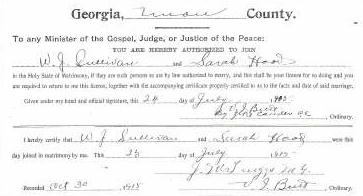 Georgia, Union County.
To any Minister of the Gospel, Judge, or Justice of the Peace:
YOU ARE HEREBY AUTHORIZED TO JOIN
W. J. Sullivan and Sarah Hood
in the Holy State of Matrimony, if they are such persons as are by law authorized to marry, and this shall be your license for so doing and you
are required to return to me this license, together with the accompanying certificate properly certified to as to the facts and date of said marriage.
Given under my hand and official signature, this 24 day of July 1915
Ordinary.
I hereby certify that W J Sullivan and Sarah Hood were this
day joined in matrimony by me. This 25 day of July 1915
Recorded Oct 30 1915 Ordinary.